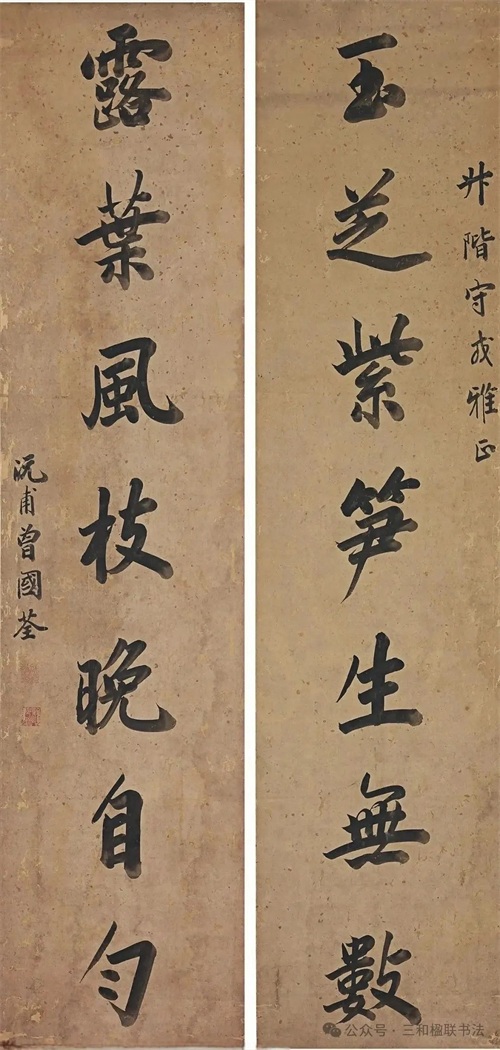 玉芝紫笋生無數
升階守戎雅正
露葉風枝晚自勻
沅甫曾國荃
公众号·三和楹联书法